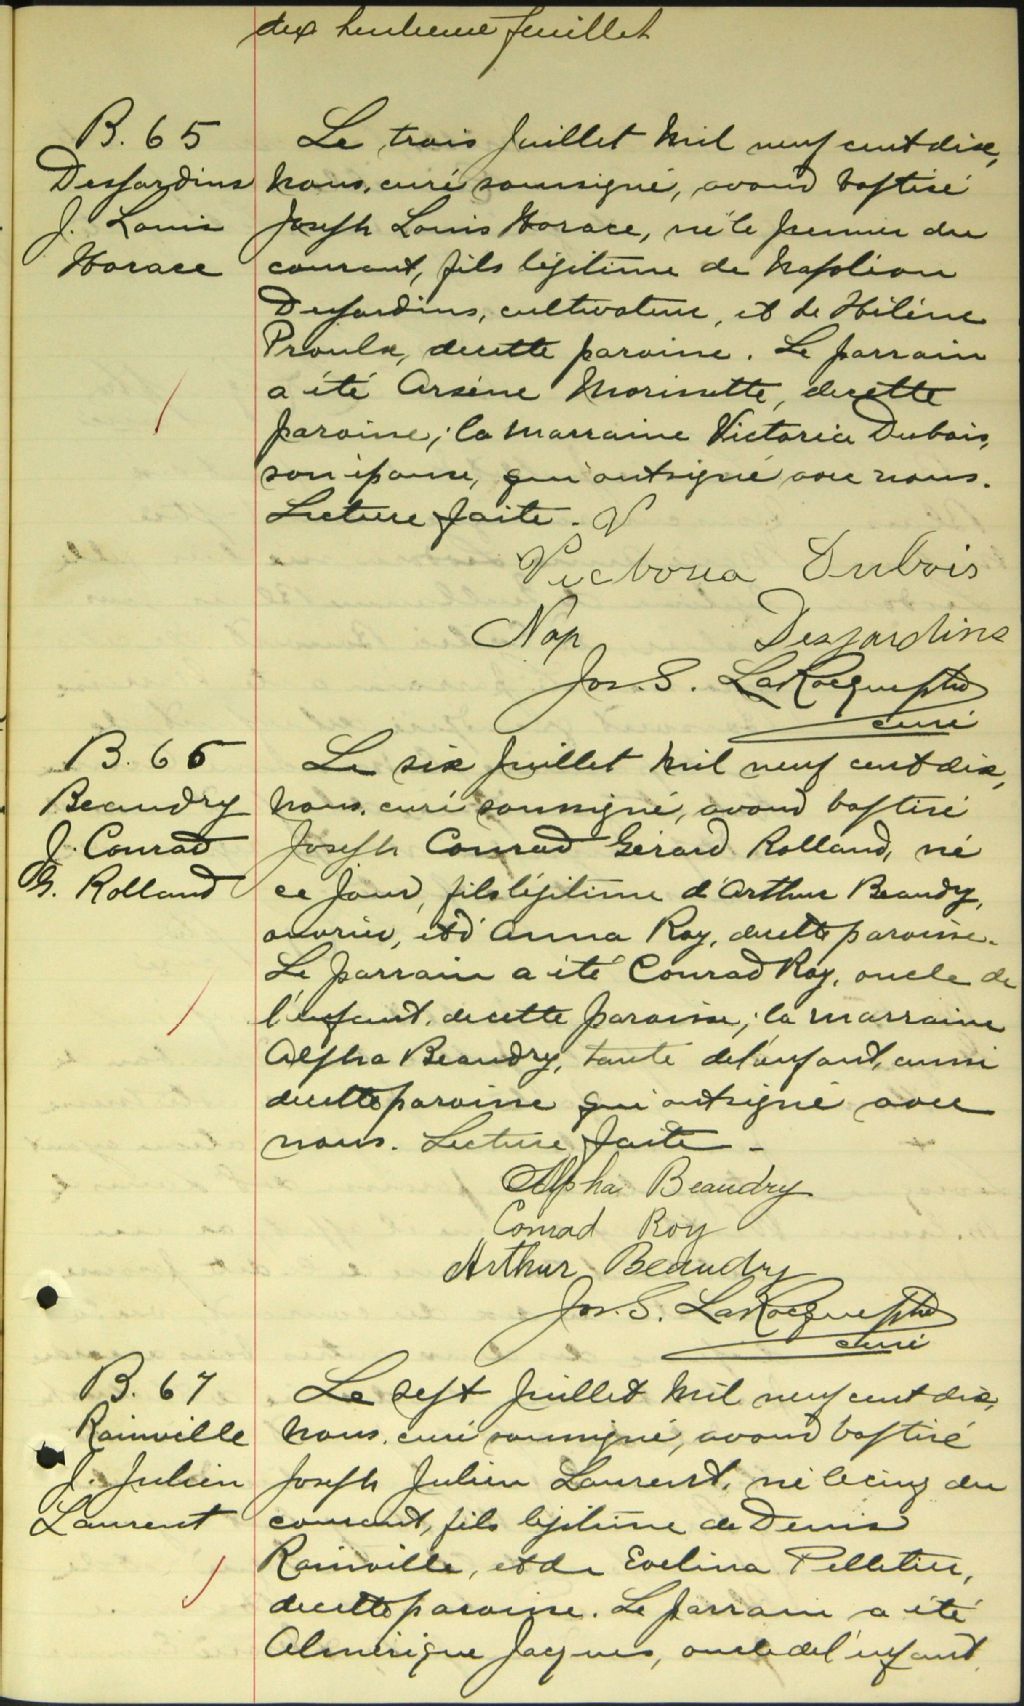 dix huitième feuillet
B. 65
Desjardins
J. Louis
Horace
Le trois Juillet mil neuf cent dix,
nous, curé soussigné, avons baptisé
Joseph Louis Horace, né le premier du
courant, fils légitime de Napoléon
Desjardins, cultivateur, et de Hélène
Proulx, de cette paroisse. Le parrain
a été Arsène Morissette, de cette
paroisse; la marraine Victoria Dubois,
son épouse, qui ont signé avec nous.
Lecture faite. V
Victoria Dubois
Nap Desjardins
Jos. S. LaRocque ptre
curé
B. 66
Beaudry
J. Conrad
G. Rolland
Le six Juillet mil neuf cent dix,
nous, curé soussigné, avons baptisé
Joseph Conrad Gérard Rolland, né
ce jour, fils légitime d'Arthur Beaudry,
ouvrier, et d'Anna Roy, de cette paroisse.
Le parrain a été Conrad Roy, oncle de
l'enfant, de cette paroisse; la marraine
Alpha Beaudry, tante de l'enfant, aussi
de cette paroisse qui ont signé avec
nous. Lecture faite -
Alpha Beaudry
Conrad Roy
Arthur Beaudry
Jos. S. LaRocque ptre
curé
B. 67
Rainville
J. Julien
Laurent
Le sept Juillet mil neuf cent dix,
nous, curé soussigné, avons baptisé
Joseph Julien Laurent, né le cinq du
courant, fils légitime de Denis
Rainville, et de Evelina Pelletier,
de cette paroisse. Le parrain a été
Almérique Jacques, oncle de l'enfant,